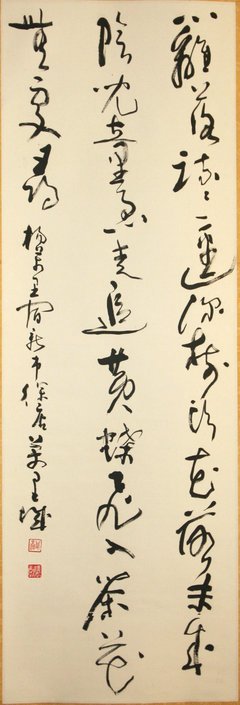 籬落疎々一逕深樹頭花落未成
陰兒童急走追黃蝶飛入菜花
無處尋 楊万里宿新市徐公店